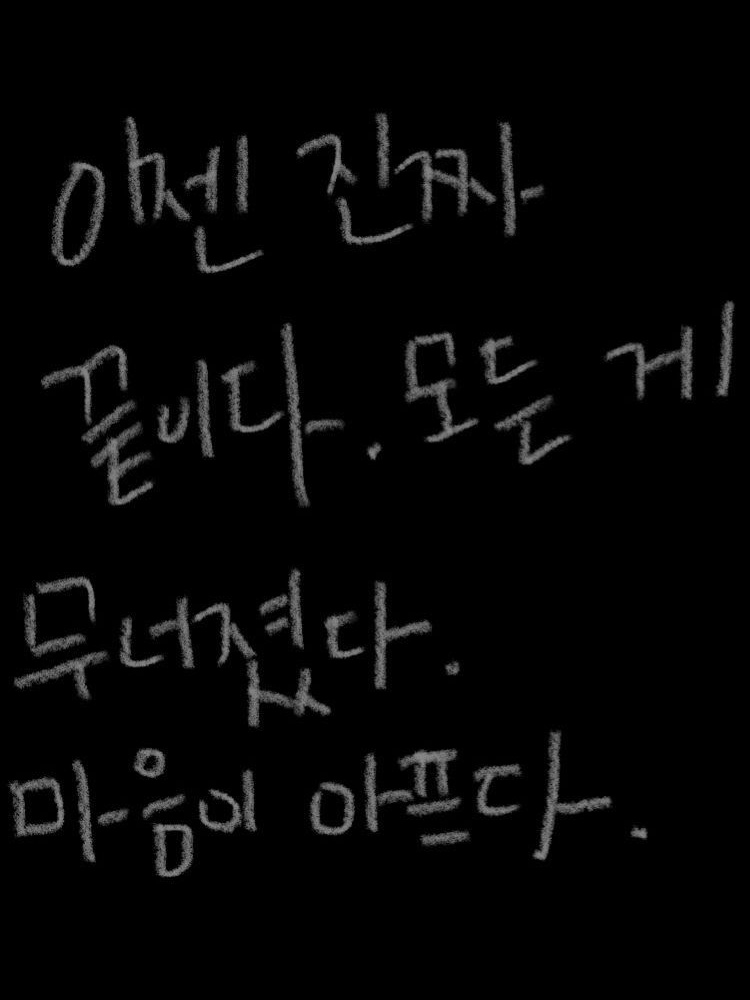 이젠 진짜
끝이다. 모든 게
무너졌다.
마음이 아프다.